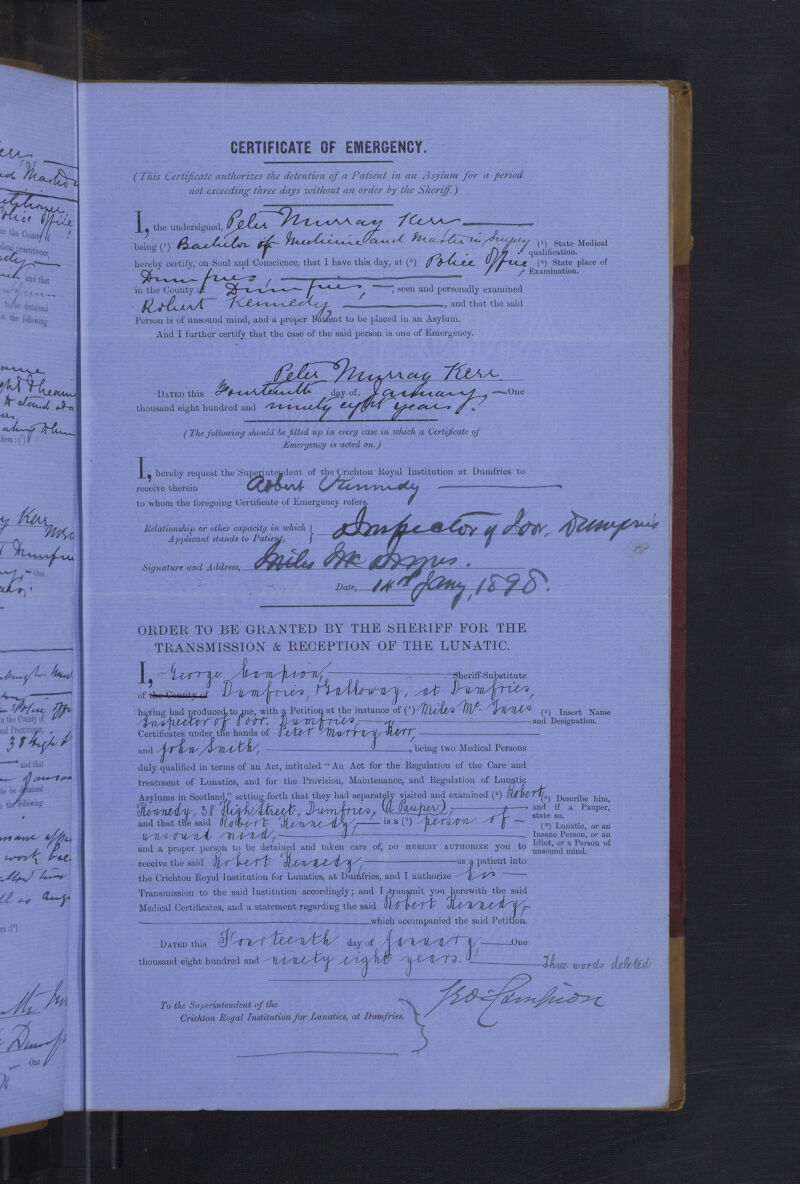 CERTIFICATE OF EMERGENCY.
(This Certificate authorizes the detention of a Patient in an Asylum for a period
not exceeding three days without an order by the Sheriff.)
I, the undersigned, Peter Murray Kerr
being (¹) Bachelor of Medicine and Master in Surgery
(¹) State Medical
qualification.
hereby certify, on Soul and Conscience, that I have this day, at (²) Police Office
(²) State place of
Examination.
Dumfries,
in the County of Dumfries, seen and personally examined
Robert Kennedy, and that the said
Person is of unsound mind, and a proper Patient to be placed in an Asylum.
And I further certify that the case of the said person is one of Emergency.
Peter Murray Kerr.
DATED this Fourteenth day of January, One
thousand eight hundred and ninety eight years.
(The following should be filled up in every case in which a Certificate of
Emergency is acted on.)
I, hereby request the Superintendent of the Crichton Royal Institution at Dumfries to
receive therein Robert Kennedy
to whom the foregoing Certificate of Emergency refers.
Relationship or other capacity in which
Applicant stands to Patient, } Inspector of Poor. Dumfries
Signature and Address, Miles Mc Innes.
Date, 14th Jany, 1898.
ORDER TO BE GRANTED BY THE SHERIFF FOR THE
TRANSMISSION & RECEPTION OF THE LUNATIC.
I, George Campion, Sheriff-Substitute
of the County of Dumfries, Galloway, at Dumfries,
having had produced to me, with a Petition at the instance of (¹) Miles Mc Innes
(¹) Insert Name
and Designation.
Inspector of Poor, Dumfries,
Certificates under the hands of Peter Murray Kerr,
and John Smith, being two Medical Persons
duly qualified in terms of an Act, intituled "An Act for the Regulation of the Care and
treatment of Lunatics, and for the Provision, Maintenance, and Regulation of Lunatic
Asylums in Scotland," setting forth that they had separately visited and examined (²) Robert
(²) Describe him,
and if a Pauper,
state so.
Kennedy, 38 High Street, Dumfries, (A Pauper),
and that the said Robert Kennedy, is a (³) person of
(³) Lunatic, or an
Insane Person, or an
Idiot, or a Person of
unsound mind.
unsound mind,
and a proper person to be detained and taken care of, DO HEREBY AUTHORIZE you to
receive the said Robert Kennedy, as a patient into
the Crichton Royal Institution for Lunatics, at Dumfries, and I authorize his
Transmission to the said Institution accordingly; and I transmit you herewith the said
Medical Certificates, and a statement regarding the said Robert Kennedy,
which accompanied the said Petition.
DATED this Fourteenth day of January, One
thousand eight hundred and ninety eight years.
Three words deleted
Geo. Campion
To the Superintendent of the
Crichton Royal Institution for Lunatics, at Dumfries.